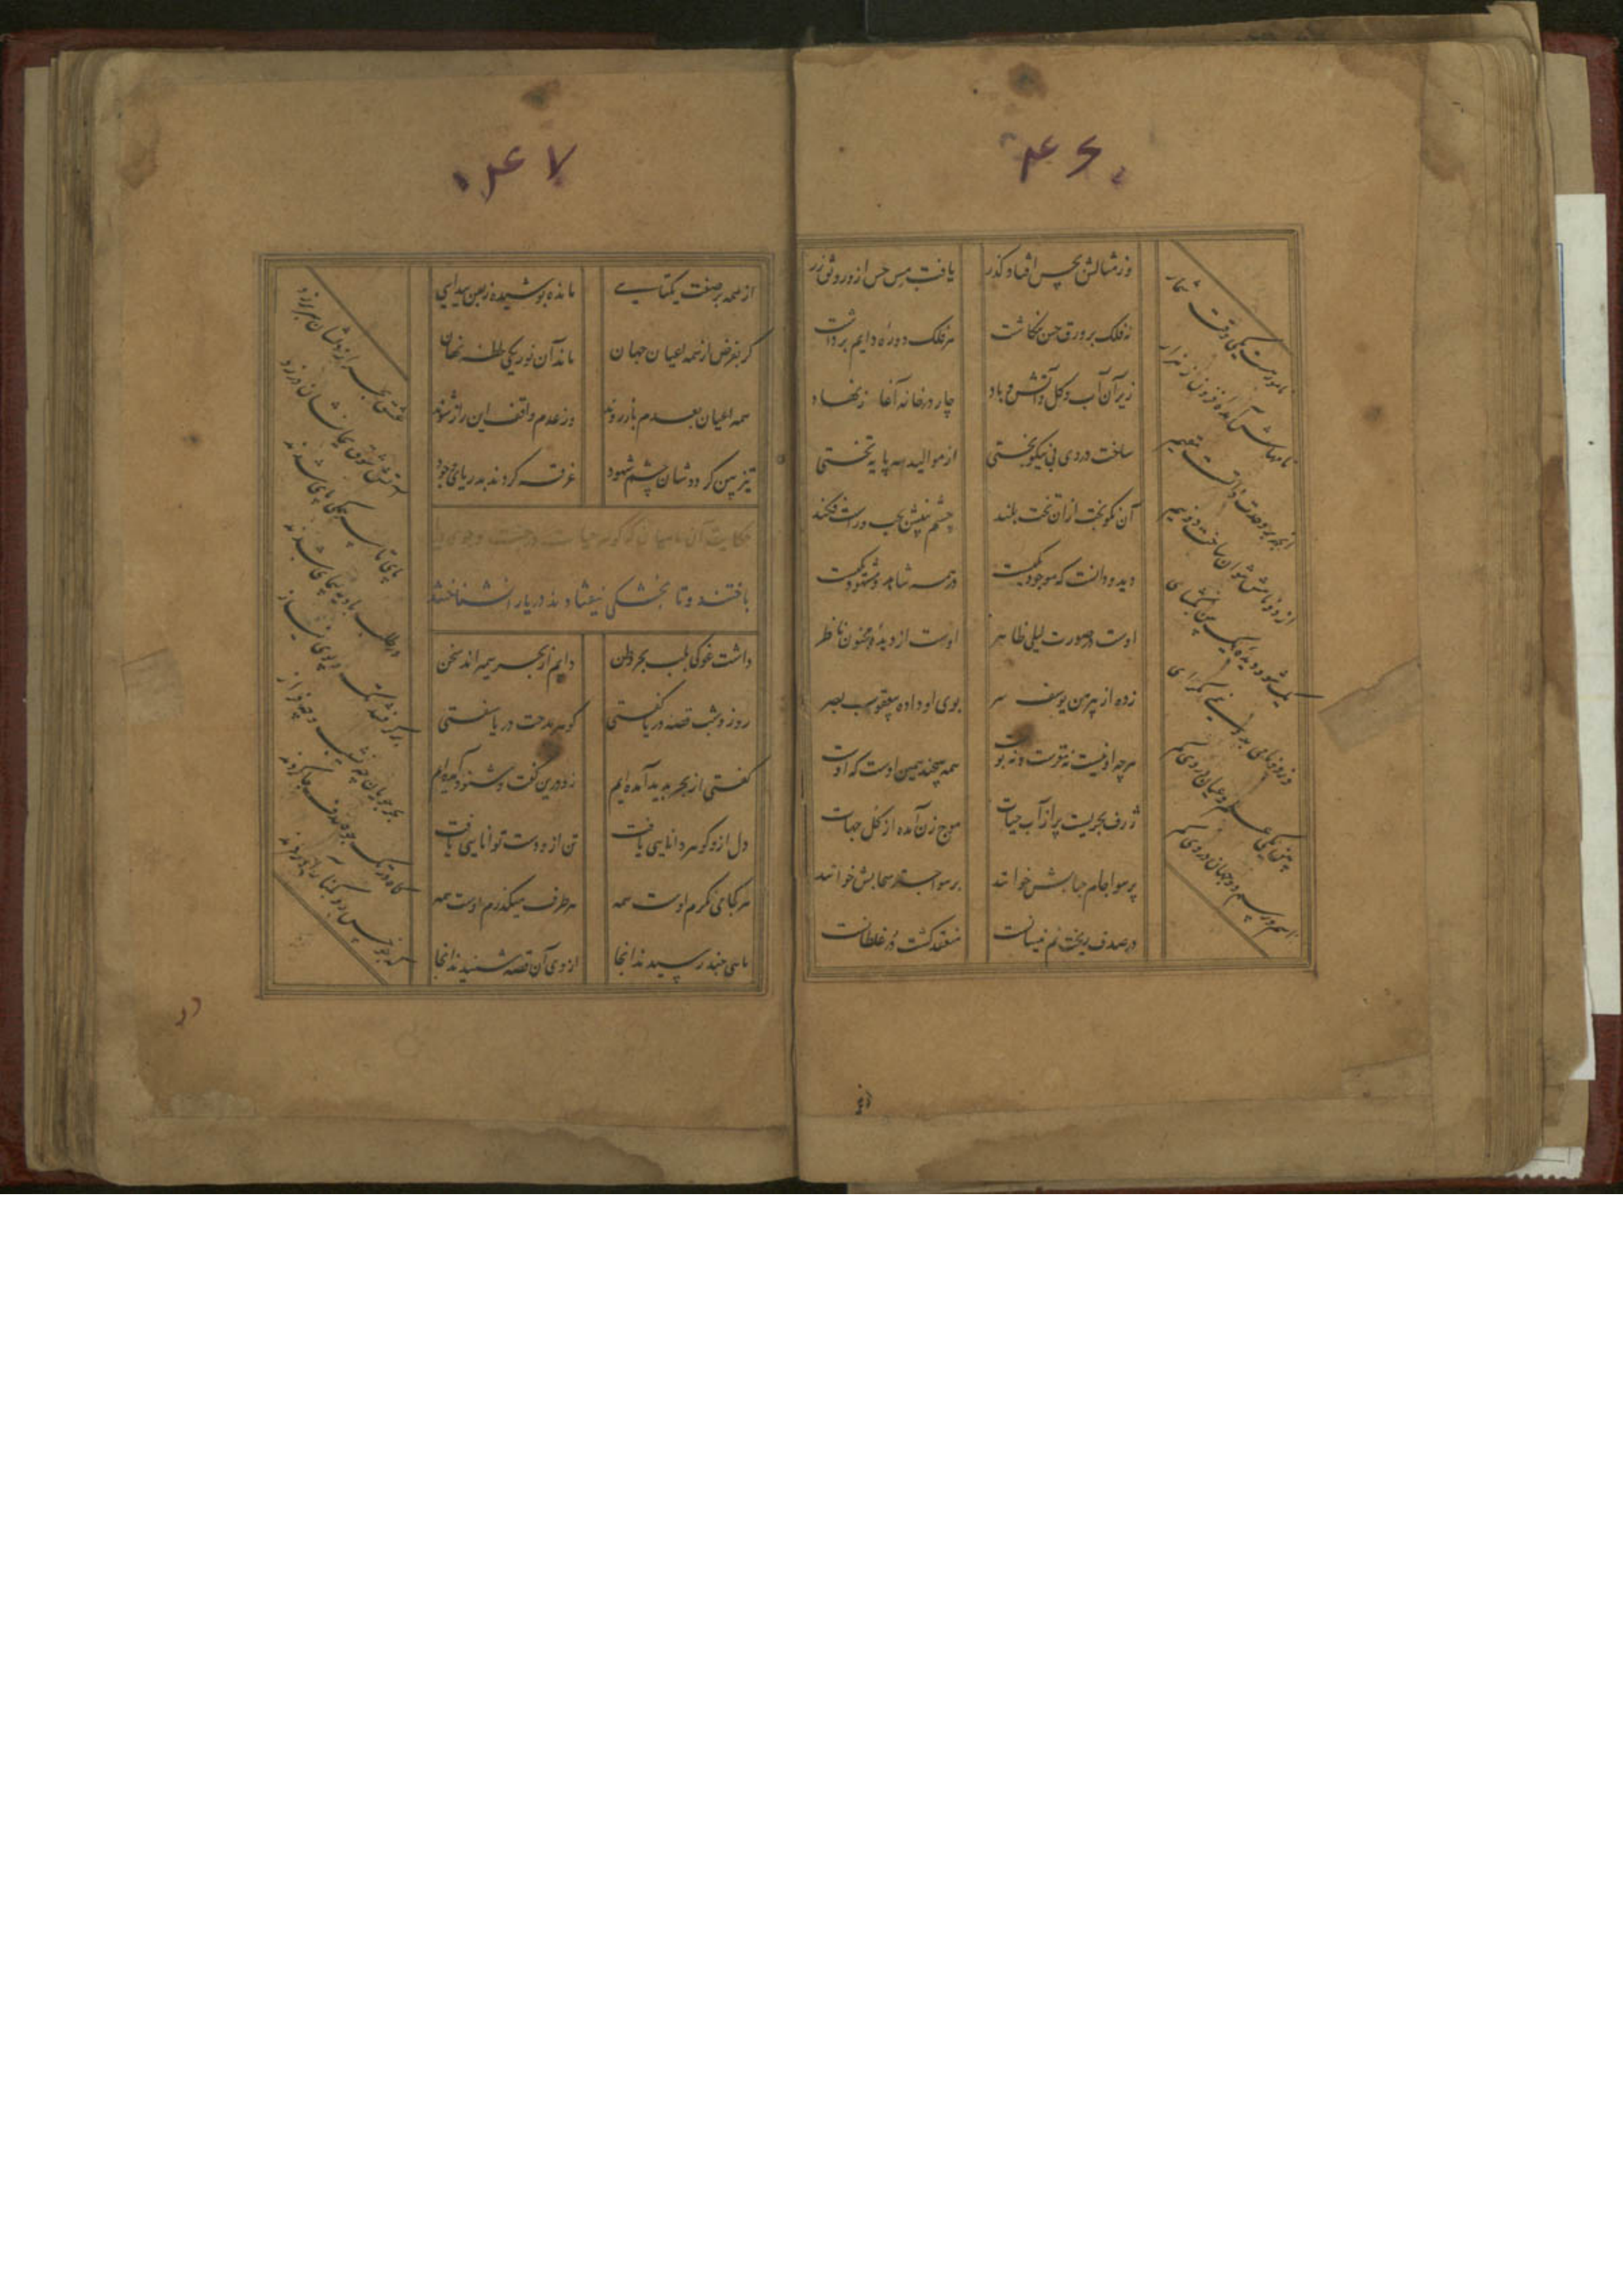 ۴۶
وز مثالش بحس افتاد گذر
یافت مس حس ازو رونق زر
نه فلک بر ورق حس بنگاشت
هر فلک دوره دایم برداشت
زیر آن آب و گل و آتش و باد
چار در خانه آغاز نهاد
ساخت در وی پی نیکو بختی
از موالید سه پایه تختی
آن نکو بخت ازان تخت بلند
چشم بینش بچپ و راست فکند
دید و دانست که موجود یکیست
در همه شاهد و مشهود یکیست
اوست در صورت لیلی ظاهر
اوست از دیده مجنون ناظر
زده از پیرهن یوسف سر
بوی او داده بیعقوب بصر
هرچه او نیست نه تو هست و نه پوست
همه هیچند همین اوست که اوست
ژرف بحریست پر از آب حیات
موج زن آمده از کل جهات
بر سوا جام حبابش خوانند
بر سوا جسته سحابش خوانند
در صدف ریخت نم نیسانست
منعقد گشت در غلطانست
نامور هست یکی وقت شمار
نامهاش آمده افزون ز هزار
۴۷
از همه بر صفت یکتایی
مانده پوشیده ز بس پیدایی
گر بفرض از همه اعیان جهان
ماند آن نور یکی لحظه نهان
همه اعیان بعدم باز روند
وز عدم واقف این راز شوند
تیز بین گردد شان چشم شهود
غرقه گردند بدریای وجود
حکایت آن ماهیان که گوهر حیات در جست و جوی دریا
باختند و تا بخشکی نیفتادند دریا را نشناختند
داشت غوکی بلب بحر وطن
دایم از بحر همی راند سخن
روز و شب قصه دریا گفتی
گوهر مدحت دریا سفتی
گفتی از بحر پدید آمده ایم
زو درین گفت و شنود آمده ایم
دل ازو گوهر دانایی یافت
تن ازو دست توانایی یافت
هر کجا می نگرم اوست همه
هر طرف میگذرم اوست همه
ماهی چند رسیدند آنجا
از وی آن قصه شنیدند آنجا
عشق بحر از دلشان سر بر زد
آتش شوق بجانشان در زد
پای تا سر همگی پای شدند
در طلب بادیه پیمای شدند
بر گرفتند تک و پوی نیاز
بحر جویان چه نشیب و چه فراز